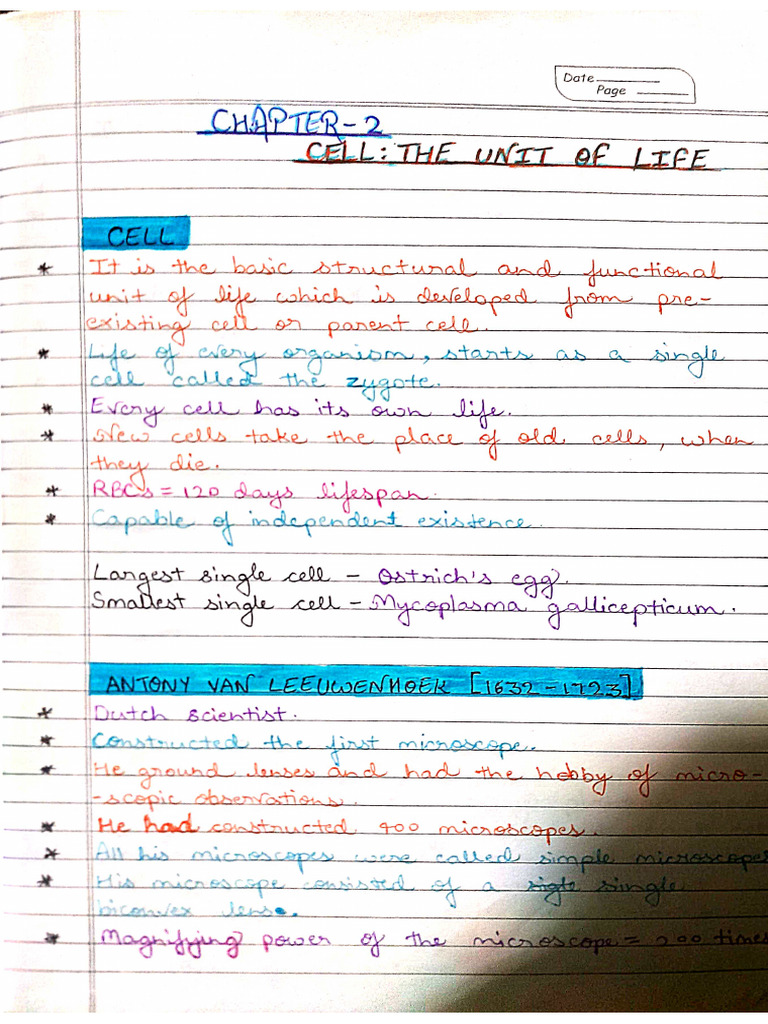 Date
Page
CHAPTER-2
CELL: THE UNIT OF LIFE
CELL
* It is the basic structural and functional
unit of life which is developed from pre-
existing cell or parent cell.
* Life of every organism, starts as a single
cell called the zygote.
* Every cell has its own life.
* New cells take the place of old cells, when
they die.
* RBCs = 120 days lifespan.
* Capable of independent existence.
Largest single cell - Ostrich's egg.
Smallest single cell - Mycoplasma gallicepticum.
ANTONY VAN LEEUWENHOEK [1632-1723]
* Dutch scientist.
* Constructed the first microscope.
* He ground lenses and had the hobby of micro-
-scopic observations.
* He had constructed 400 microscopes.
* All his microscopes were called simple microscopes
* His microscope consisted of a single
biconvex lens.
* Magnifying power of the microscope = 200 times